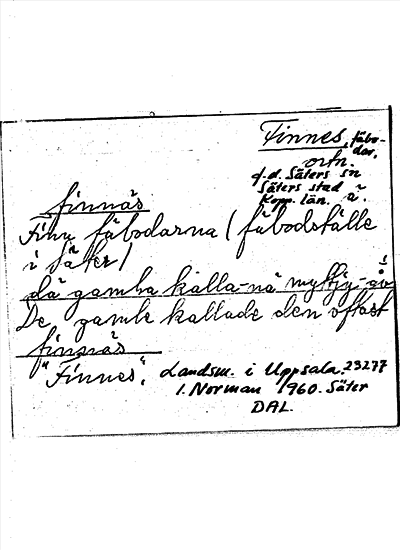 Finnes, fäbo-
dar,
ortn.
f.d. Säters sn
Säters stad
Kopp. län.
finnäs
Finn fäbodarna (fäbodställe
i Säter)
då gamla kalla-nä mytjy-
De gamle kallade den oftast
finnäs
"Finnes".
Landsm. i Uppsala. 23277
I. Norman 1960. Säter
DAL.